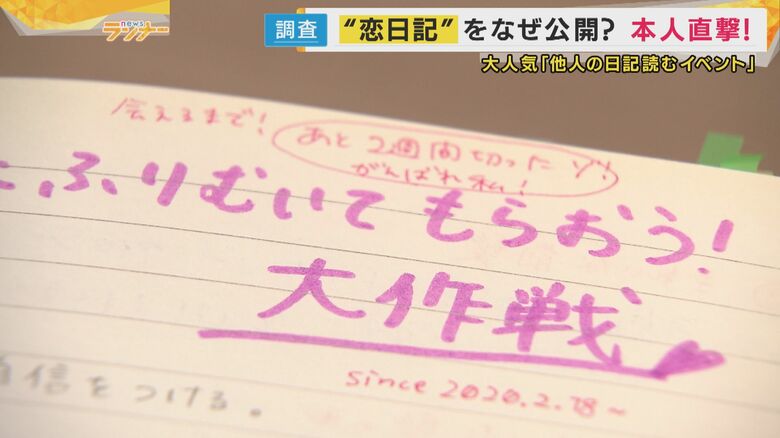 news
ランナー
調査
“恋日記”をなぜ公開? 本人直撃!
大人気「他人の日記読むイベント」
会えるまで!
あと2週間切ったゾ!
がんばれ私!
ふりむいてもらおう!
大作戦
since 2020.2.28~
信をつける。